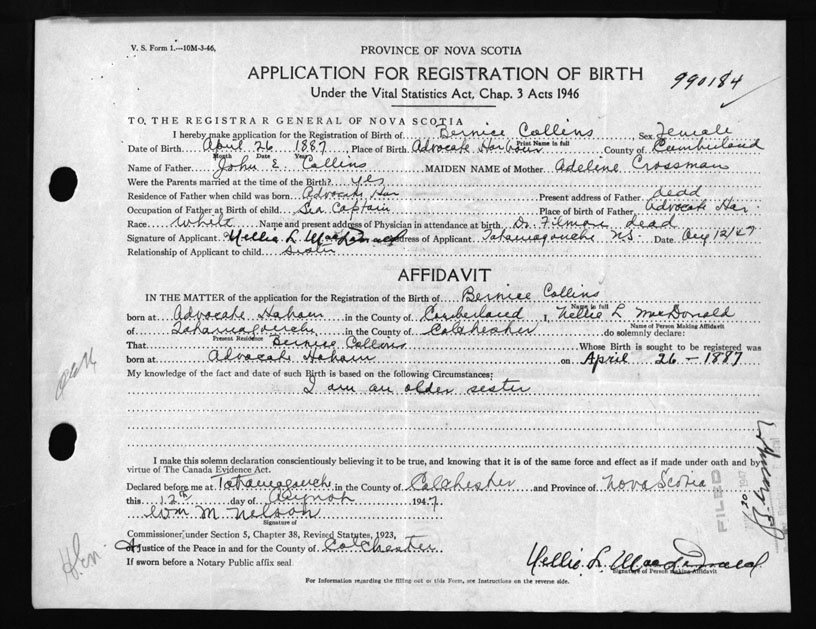 V. S. Form 1.—10M-3-46,
PROVINCE OF NOVA SCOTIA
APPLICATION FOR REGISTRATION OF BIRTH
990184
Under the Vital Statistics Act, Chap. 3 Acts 1946
TO, THE REGISTRAR GENERAL OF NOVA SCOTIA
I hereby make application for the Registration of Birth of Bernice Collins, Sex Female
Print Name in full
Date of Birth April 26 1887, Place of Birth Advocate Harbour County of Cumberland
Month Date Year
Name of Father John E Collins MAIDEN NAME of Mother Adeline Crossman
Were the Parents married at the time of the Birth? yes
Residence of Father when child was born Advocate Har Present address of Father dead
Occupation of Father at Birth of child Sea Captain Place of birth of Father Advocate Har.
Race White Name and present address of Physician in attendance at birth Dr. Filmore dead
Signature of Applicant Nellie L. MacDonald Address of Applicant Tatamagouche NS. Date Aug 12/47
Relationship of Applicant to child sister
AFFIDAVIT
IN THE MATTER of the application for the Registration of the Birth of Bernice Collins
Name in full
born at Advocate Haham in the County of Cumberland I, Nellie L MacDonald
Name of Person Making Affidavit
of Tatamagouche in the County of Colchester do solemnly declare:
Present Residence
That Bernice Collins Whose Birth is sought to be registered was
born at Advocate Haham on April 26 - 1887
My knowledge of the fact and date of such Birth is based on the following Circumstances:
I am an older sister
I make this solemn declaration conscientiously believing it to be true, and knowing that it is of the same force and effect as if made under oath and by
virtue of The Canada Evidence Act.
Declared before me at Tatamagouche in the County of Colchester and Province of Nova Scotia
this 12th day of August 1947
Wm M. Nelson
Signature of
Commissioner under Section 5, Chapter 38, Revised Statutes, 1923,
or Justice of the Peace in and for the County of Colchester
If sworn before a Notary Public affix seal
Nellie L. MacDonald
Signature of Person Making Affidavit
For Information regarding the filling out of this Form, see Instructions on the reverse side.
FILED